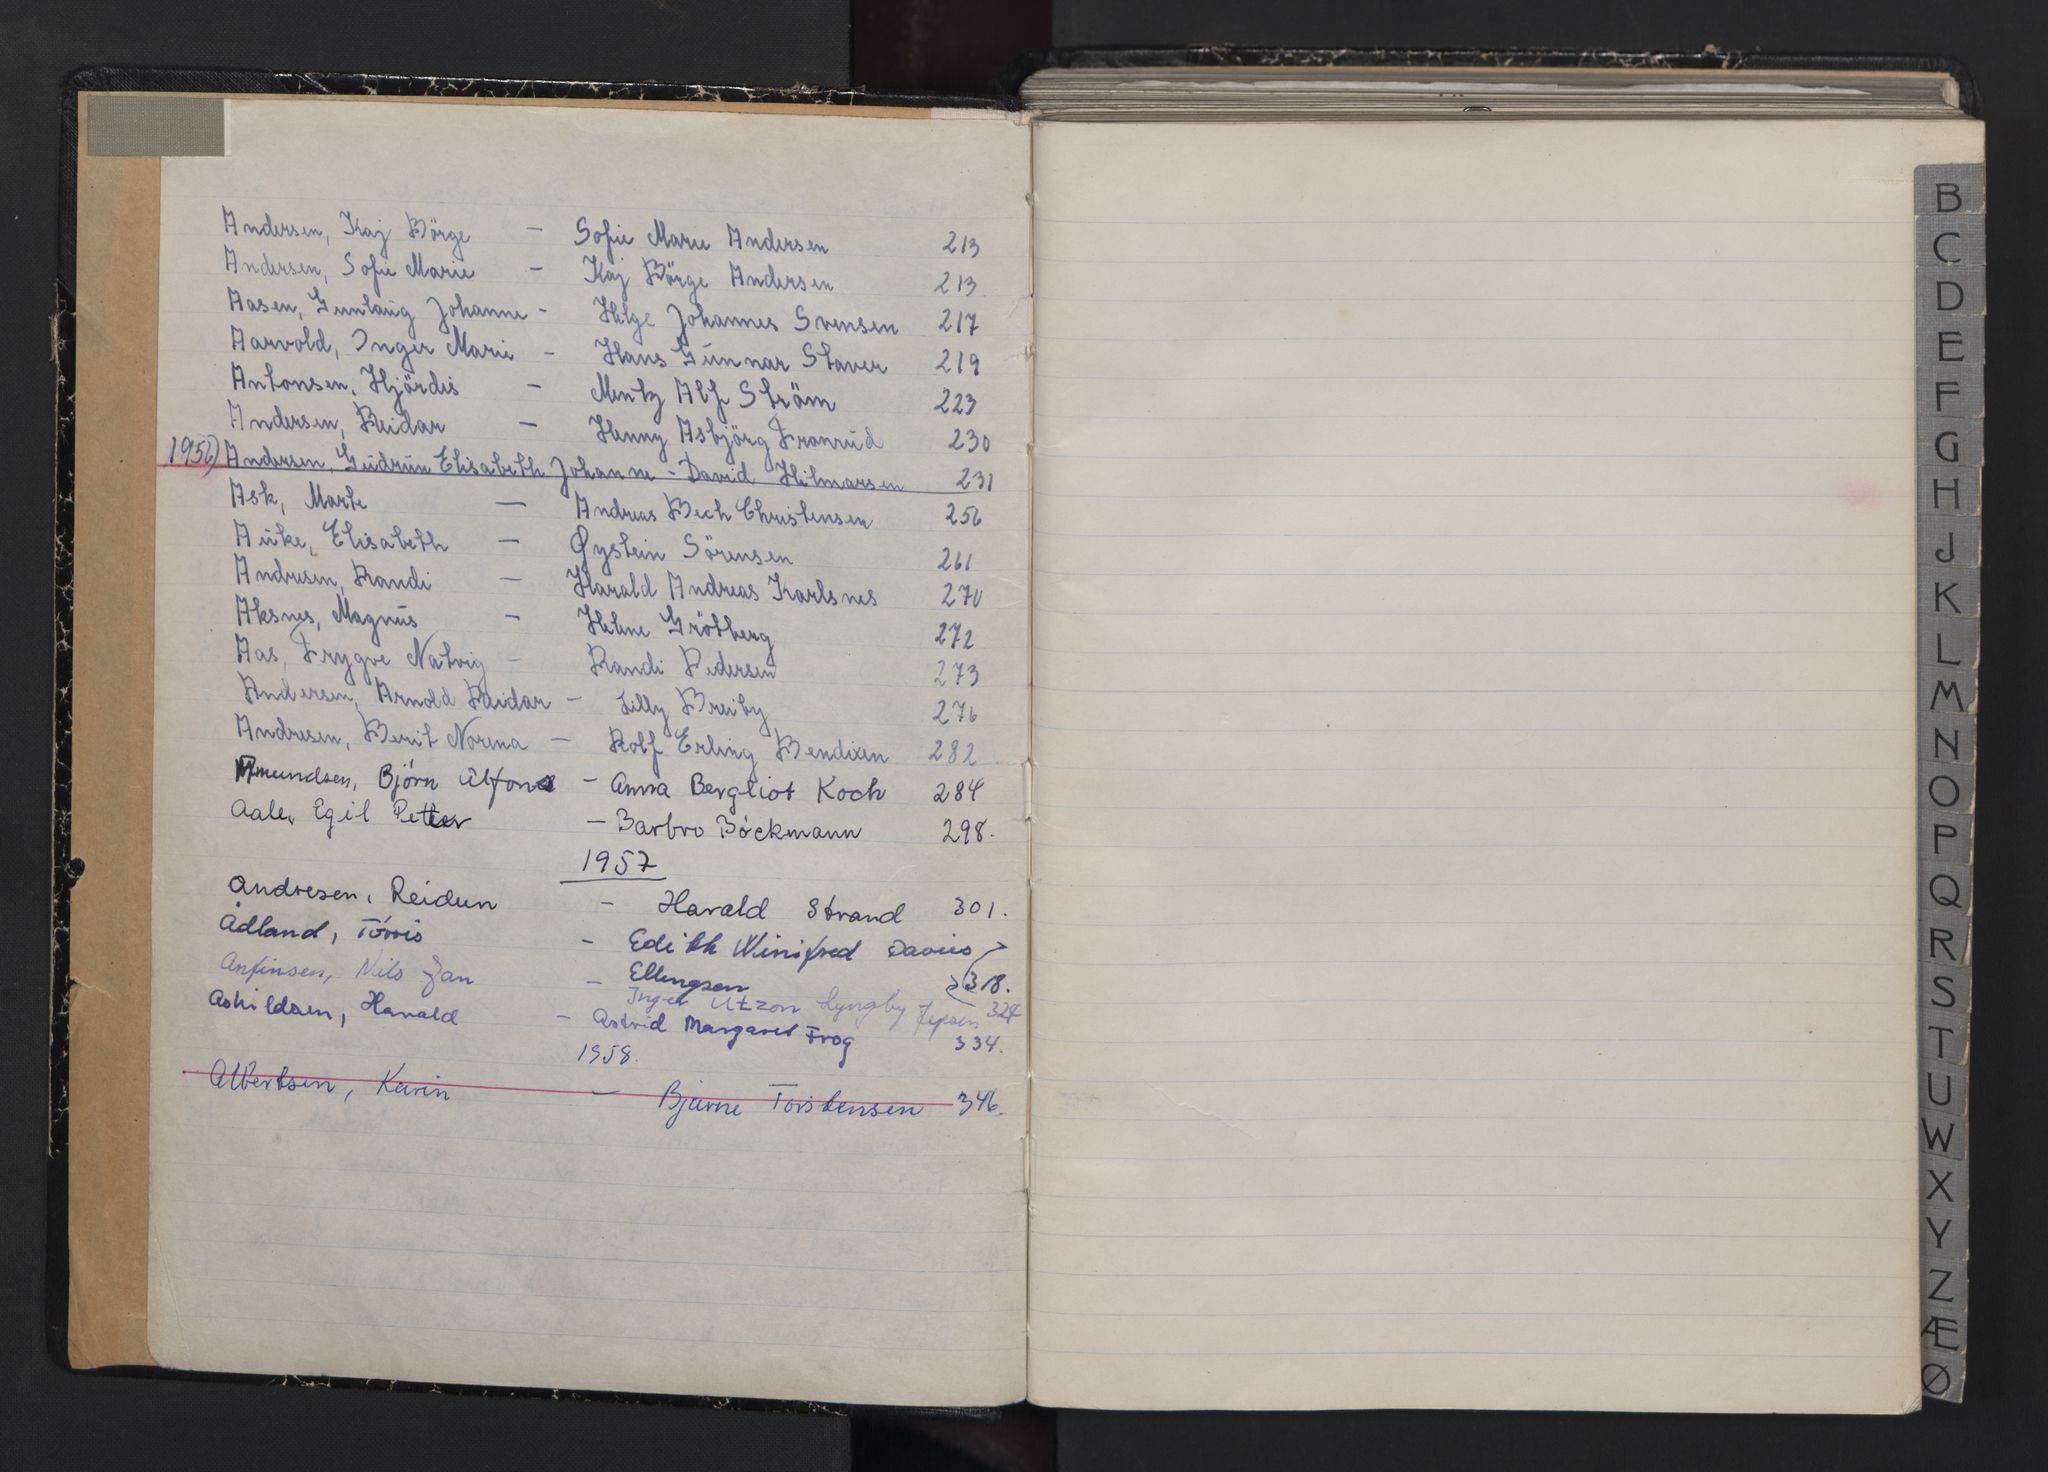 Andersen, Kaj Börge - Sofie Marie Andersen 213
Andersen, Sofie Marie - Kaj Börge Andersen 213
Aasen, Gunlaug Johanne - Helge Johannes Svensen 217
Aarvold, Inger Marie - Hans Gunnar Staver 219
Antonsen, Hjördis - Mentz Alf Ström 223
Andersen, Reidar - Henny Asbjörg Fronrud 230
1956) Andersen, Gudrun Elisabeth Johanne - David Hilmarsen 231
Ask, Marte - Andreas Bech Christensen 256
Auke, Elisabeth - Øystein Sörensen 261
Andresen, Randi - Harald Andreas Karlsnes 270
Aksnes, Magnus - Helene Grötberg 272
Aas, Trygve Natvig - Randi Pedersen 273
Andersen, Arnold Reidar - Lilly Breiby 276
Andresen, Berit Norma - Rolf Erling Bendixen 282
Amundsen, Björn Alfons - Anna Bergliot Koch 284
Aale, Egil Petter - Barbro Böckmann 298.
1957
Andresen, Reidun - Harald Strand 301.
Ådland, Torris - Edith Winifred Davies
Ellingsen 318.
Anfinsen, Nils Jan - Inger Utzon Lyngby Jepsen 324
Ashildsen, Harald - Astrid Margaret Frog 334.
1958.
Albertsen, Karin - Bjarne Torstensen 346.
B
C
D
E
F
G
H
J
K
L
M
N
O
P
Q
R
S
T
U
W
X
Y
Z
Æ
Ø